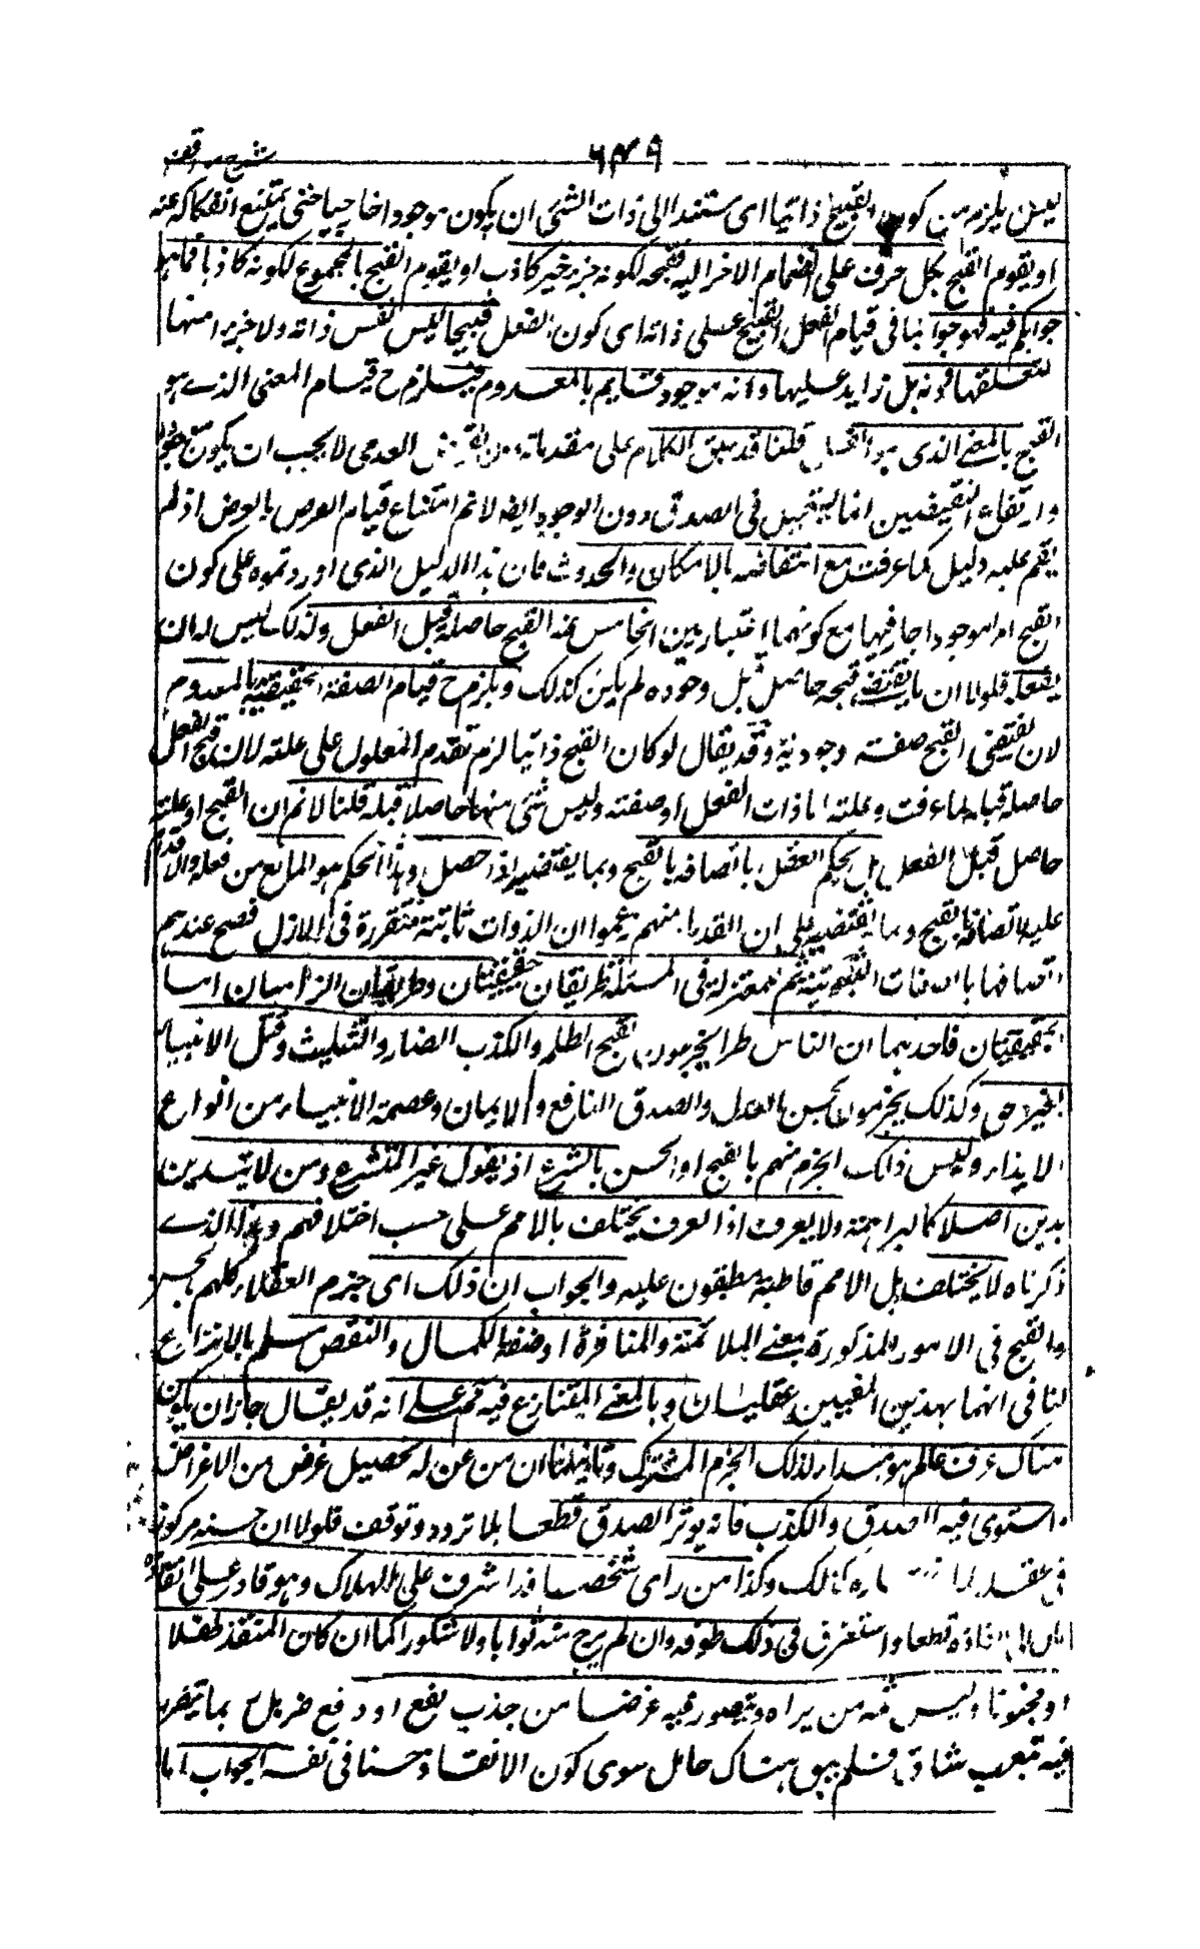 شرح مواقف
٦٣٩
ليس يلزم من كون القبيح ذاتيا اى مستندا الى ذات الشئ ان يكون موجودا خارجيا حتى يمتنع انفكاكه عنه
او يقوم القبح بكل حرف على انضمام الاخر اليه فقبحه لكونه جزء خبر كاذب او يقوم القبح بالمجموع لكونه كاذبا فما هو
جوابكم فيه فهو جوابنا فى قيام الفعل القبيح على ذاته اى كون الفعل قبيحا ليس نفس ذاته ولا جزءا منها
لتعقلها دونه بل زايد عليها وانه موجود قايم بالمعدوم فيلزم ح قيام المعنى الذے هو
القبح بالمعنے الذى هو الفعل قلنا قد سبق الكلام على مقدماته من العدمى لا يجب ان يكون
وارتفاع النقيضين انما يستحيل فى الصدق دون الوجود ايضه لا نم امتناع قيام العرض بالعرض اذ لم
يقم عليه دليل كما عرفت مع انتقاضه بالامكان والحدوث فان هذا الدليل الذى اوردتموه على كون
القبح امرا موجودا جار فيهما مع كونهما اعتباريين الخامس علة القبح حاصلة قبل الفعل ولذلك ليس له ان
يفعله فلولا ان ما يقتضے قبحه حاصل قبل وجوده لم يكن كذلك ويلزم ح قيام الصفة الحقيقية بالمعدوم
لان مقتضى القبح صفة وجودية وقد يقال لو كان القبح ذاتيا لزم تقدم المعلول على علته لان قبح الفعل
حاصل قبله لما عرفت وعلته اما ذات الفعل او صفته وليس شئ منهما حاصلا قبله قلنا لا نم ان القبح او علته
حاصل قبل الفعل بل يحكم العقل باتصافه بالقبح وبما يقتضيه اذا حصل وهذا الحكم هو المانع من فعله والاقدام
عليه لا اتصافه بالقبح وما يقتضيه على ان القدماء منهم زعموا ان الذوات ثابتة متقررة فى الازل فصح عندهم
اتصافها بالصفات الثبوتية ثم للمعتزلة فى المسئلة طريقان حقيقيتان وطريقان الزاميان اما
الحقيقيتان فاحدهما ان الناس طرا يجزمون بقبح الظلم والكذب الضار والتثليث وقتل الانبياء
بغير حق وكذلك يجزمون بحسن العدل والصدق النافع والايمان وعصمة الانبياء من انواع
الايذاء وليس ذلك الجزم منهم بالقبح او الحسن بالشرع اذ يقول غير المتشرع ومن لا يتدين
بدين اصلا كالبراهمة ولا بعرف اذ العرف يختلف بالامم على حسب اختلافهم وهذا الذے
ذكرناه لا يختلف بل الامم قاطبة مطبقون عليه والجواب ان ذلك اى جزم العقلاء كلهم بالحسن
والقبح فى الامور المذكورة بمعنے الملائمة والمنافرة او صفة الكمال والنقص مسلم بالا نزاع
لنا فى انهما بهذين المعنيين عقليان وبالمعنے المتنازع فيه مم على انه قد يقال جاز ان يكون
هناك عرف عام هو مبدأ لذلك الجزم المشترك وثانيهما ان من عن له تحصيل غرض من الاغراض
استوى فيه الصدق والكذب فانه يوثر الصدق قطعا بلا تردد وتوقف فلولا ان حسنه مركوز
فى عقله لما اختاره كذلك وكذا من راى شخصا قد اشرف على الهلاك وهو قادر على انقاذه
مال الى انقاذه قطعا واستغرق فى ذلك طوقه وان لم يرج منه ثوابا ولا شكورا كما ان كان المنقذ طفلا
او مجنونا وليس ثمه من يراه ويتصور فيه غرضا من جذب نفع او دفع ضر بل ربما يتضرر
فيه بتعب شاق فلم يبق هناك حامل سوى كون الانقاذ حسنا فى نفسه الجواب اما